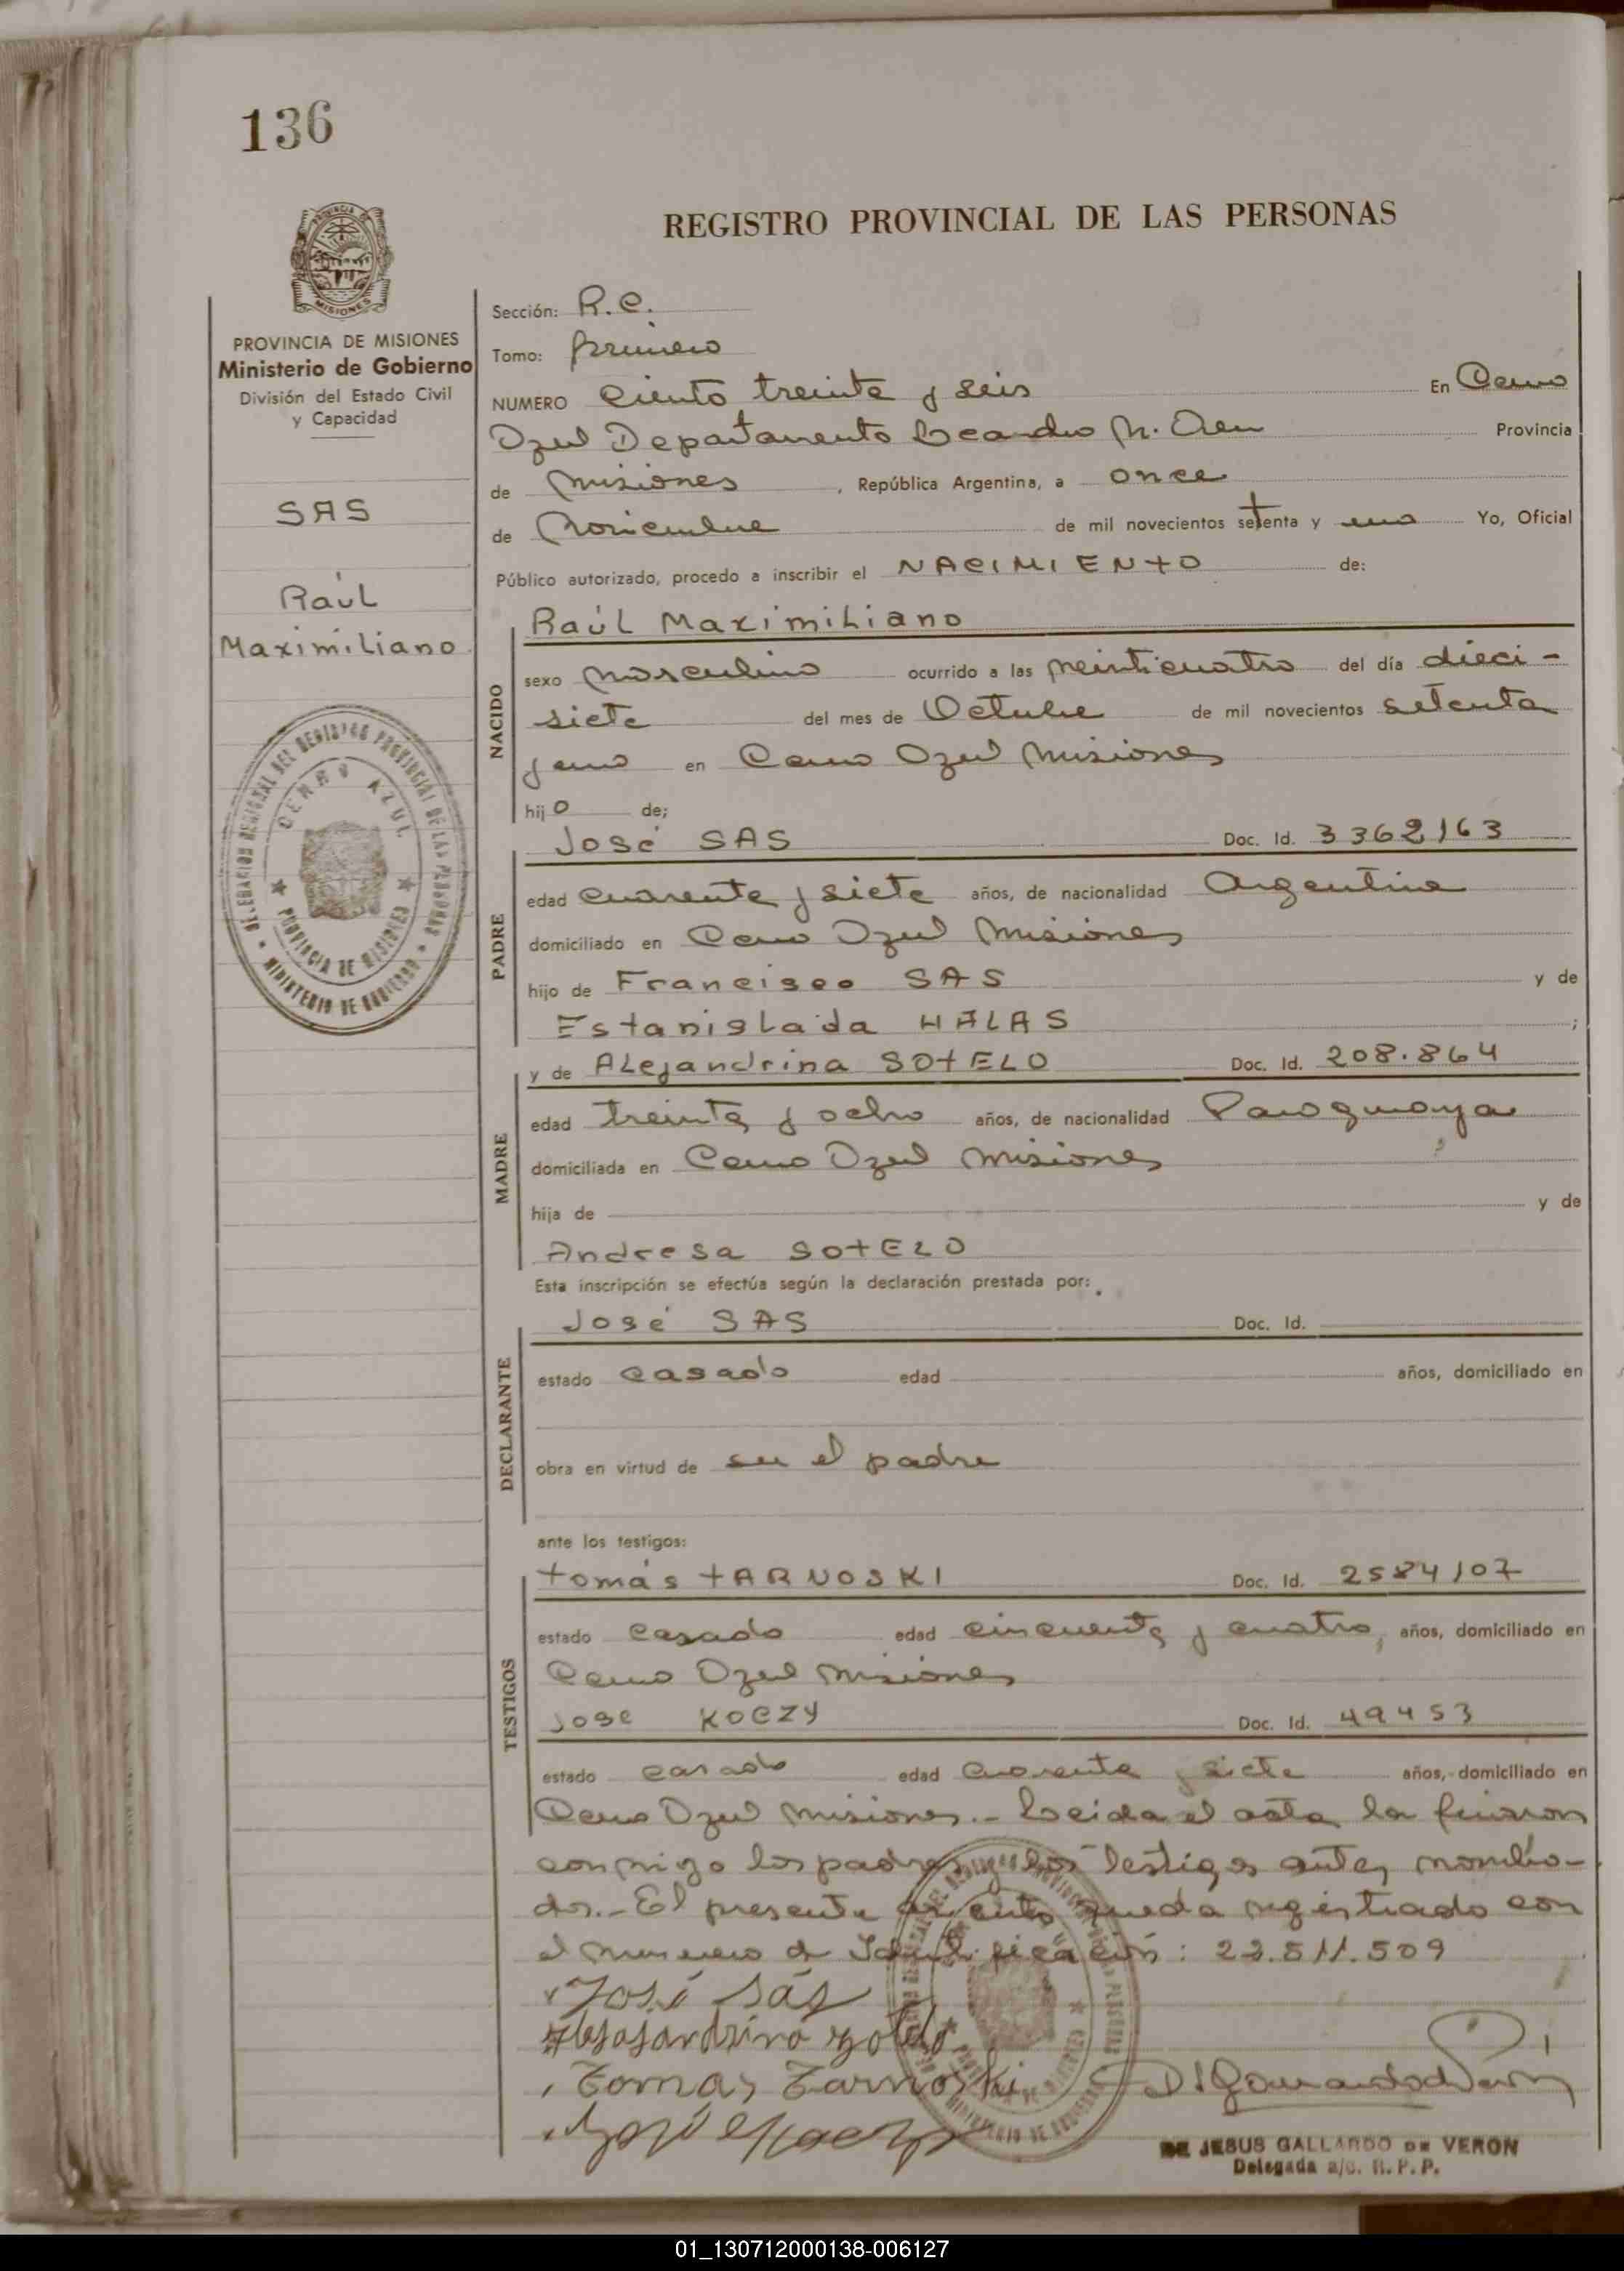 136
REGISTRO PROVINCIAL DE LAS PERSONAS
PROVINCIA DE MISIONES
Ministerio de Gobierno
División del Estado Civil
y Capacidad
SAS
Raúl
Maximiliano
DELEGACION REGIONAL DEL REGISTRO PROVINCIAL DE LAS PERSONAS
CERRO AZUL
PROVINCIA DE MISIONES
MINISTERIO DE GOBIERNO
Sección: R.C.
Tomo: primero
NUMERO Ciento treinta y seis En Cerro
Azul Departamento Leandro N. Alem Provincia
de Misiones, República Argentina, a once
de Noviembre de mil novecientos setenta y uno Yo, Oficial
Público autorizado, procedo a inscribir el NACIMIENTO de:
Raúl Maximiliano
NACIDO
sexo masculino ocurrido a las veinticuatro del día dieci-
siete del mes de Octubre de mil novecientos setenta
y uno en Cerro Azul Misiones
hijo de;
José SAS Doc. Id. 3362163
PADRE
edad cuarenta y siete años, de nacionalidad Argentina
domiciliado en Cerro Azul Misiones
hijo de Francisco SAS y de
Estanislada HALAS ;
y de Alejandrina SOTELO Doc. Id. 208.864
MADRE
edad treinta y ocho años, de nacionalidad Paraguaya
domiciliada en Cerro Azul Misiones
hija de y de
Andresa SOTELO
Esta inscripción se efectúa según la declaración prestada por:
José SAS Doc. Id.
DECLARANTE
estado casado edad años, domiciliado en
obra en virtud de ser el padre
ante los testigos:
Tomás TARNOSKI Doc. Id. 2584107
TESTIGOS
estado casado edad cincuenta y cuatro, años, domiciliado en
Cerro Azul Misiones
Jose KOCZY Doc. Id. 49453
estado casado edad cuarenta y siete años, domiciliado en
Cerro Azul Misiones.- Leida el acta la firman
conmigo los padres y los testigos antes nombra-
dos.- El presente asiento queda registrado con
el numero de Identificación: 22.511.509
José Sás
Tomas Tarnoski
DE JESUS GALLARDO DE VERON
Delegada a/c. R.P.P.
01_130712000138-006127